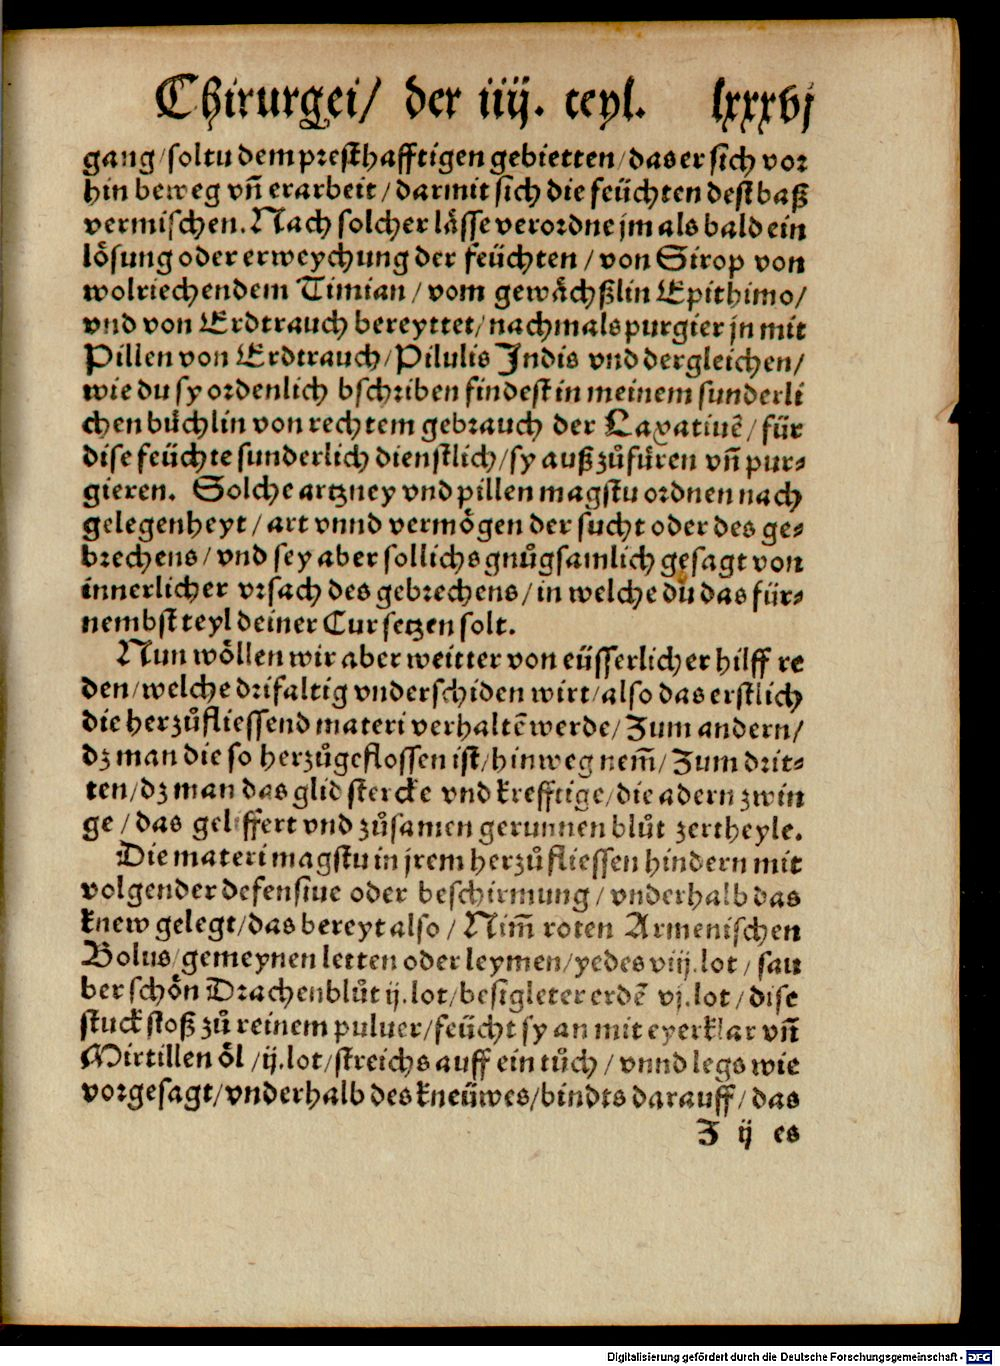 Chirurgei/ der iiij. teyl. lxxxvj
gang/soltu dem presthafftigen gebietten/das er sich vor
hin beweg vñ erarbeit/darmit sich die feüchten dest baß
vermischen. Nach solcher lässe verordne jm als bald ein
lösung oder erweychung der feüchten/von Sirop von
wolriechendem Timian/vom gewächßlin Epithimo/
vnd von Erdtrauch bereyttet/nachmals purgier jn mit
Pillen von Erdtrauch/Pilulis Indis vnd dergleichen/
wie du sy ordenlich bschriben findest in meinem sunderli
chen büchlin von rechtem gebrauch der Laxatiuē/für
dise feüchte sunderlich dienstlich/sy auß zůfüren vñ pur⸗
gieren. Solche artzney vnd pillen magstu ordnen nach
gelegenheyt/art vnnd vermögen der sucht oder des ge⸗
brechens/vnd sey aber sollichs gnůgsamlich gesagt von
innerlicher vrsach des gebrechens/in welche du das für⸗
nembst teyl deiner Cur setzen solt.
Nun wöllen wir aber weitter von eüsserlicher hilff re
den/welche drifaltig vnderschiden wirt/also das erstlich
die herzůfliessend materi verhaltē werde/Zum andern/
dz man die so herzůgeflossen ist/hinweg nem̃/Zum drit⸗
ten/dz man das glid stercke vnd krefftige/die adern zwin
ge/das geliffert vnd zůsamen gerunnen blůt zertheyle.
Die materi magstu in jrem herzůfliessen hindern mit
volgender defensiue oder beschirmung/vnderhalb das
knew gelegt/das bereyt also/Nim̃ roten Armenischen
Bolus/gemeynen letten oder leymen/yedes viij.lot/sau
ber schön Drachenblůt ij.lot/besigleter erdē vj.lot/dise
stuck stoß zů reinem puluer/feücht sy an mit eyerklar vñ
Mirtillen öl/ij.lot/streichs auff ein tůch/vnnd legs wie
vorgesagt/vnderhalb des kneüwes/bindts darauff/das
Z ij es
Digitalisierung gefördert durch die Deutsche Forschungsgemeinschaft - DFG